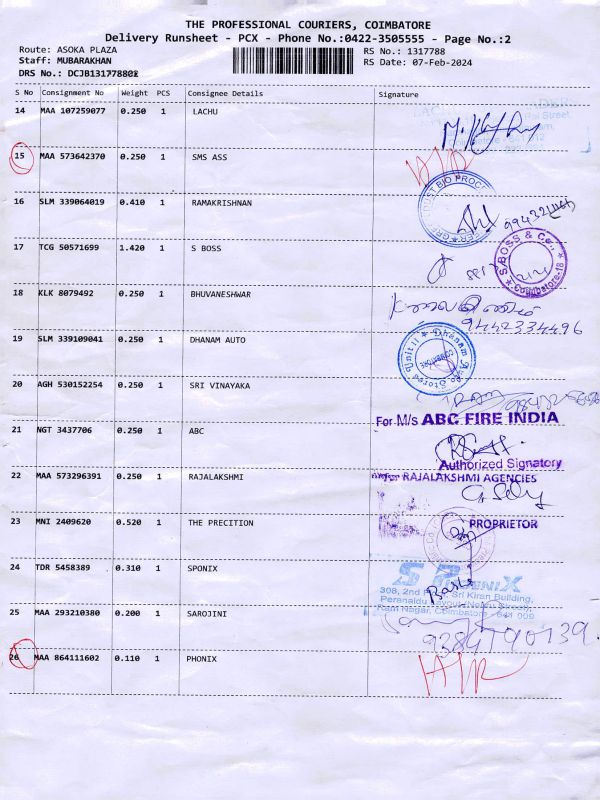 THE PROFESSIONAL COURIERS, COIMBATORE
Delivery Runsheet - PCX - Phone No.:0422-3505555 - Page No.:2
Route: ASOKA PLAZA
RS No.: 1317788
Staff: MUBARAKHAN
RS Date: 07-Feb-2024
DRS No.: DCJB131778802
S No Consignment No Weight PCS Consignee Details Signature
14 MAA 107259077 0.250 1 LACHU
15 MAA 573642370 0.250 1 SMS ASS
16 SLM 339064019 0.410 1 RAMAKRISHNAN
17 TCG 50571699 1.420 1 S BOSS
S.BOSS & Co.,
Coimbatore-18
18 KLK 8079492 0.250 1 BHUVANESHWAR
9442334496
19 SLM 339109041 0.250 1 DHANAM AUTO
Dhanam Auto Stores Unit II
20 AGH 530152254 0.250 1 SRI VINAYAKA
For M/s ABC FIRE INDIA
21 NGT 3437706 0.250 1 ABC
Authorized Signatory
22 MAA 573296391 0.250 1 RAJALAKSHMI
RAJALAKSHMI AGENCIES
23 MNI 2409620 0.520 1 THE PRECITION
PROPRIETOR
24 TDR 5458389 0.310 1 SPONIX
308, 2nd Floor, Sri Kiran Building,
Ram Nagar, Coimbatore - 641 009
25 MAA 293210380 0.200 1 SAROJINI
26 MAA 864111602 0.110 1 PHONIX